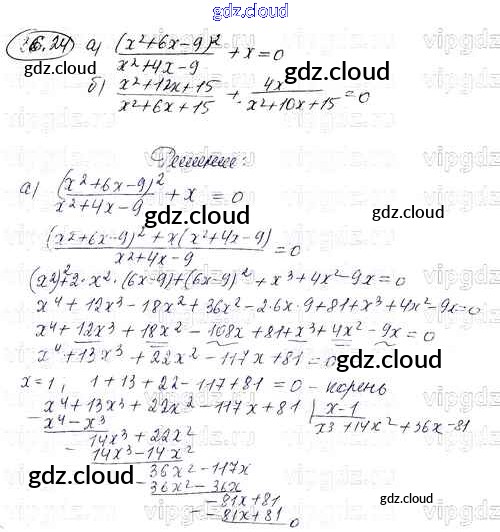 gdz.cloud
26.24 а) (x²+6x-9)²/(x²+4x-9) + x = 0
gdz.cloud gdz.cloud
б) (x²+12x+15)/(x²+6x+15) + 4x/(x²+10x+15) = 0
Решение:
а) (x²+6x-9)²/(x²+4x-9) + x = 0
gdz.cloud gdz.cloud
((x²+6x-9)² + x(x²+4x-9))/(x²+4x-9) = 0
(x²)²+2·x²·(6x-9)+(6x-9)²+x³+4x²-9x=0
x⁴+12x³-18x²+36x²-2·6x·9+81+x³+4x²-9x=0
x⁴+12x³+18x²-108x+81+x³+4x²-9x=0
x⁴+13x³+22x²-117x+81=0
gdz.cloud gdz.cloud
x=1, 1+13+22-117+81=0 - корень
x⁴+13x³+22x²-117x+81 | x-1
x⁴-x³ x³+14x²+36x-81
14x³+22x²
14x³-14x²
gdz.cloud gdz.cloud
36x²-117x
36x²-36x
-81x+81
-81x+81
0
gdz.cloud